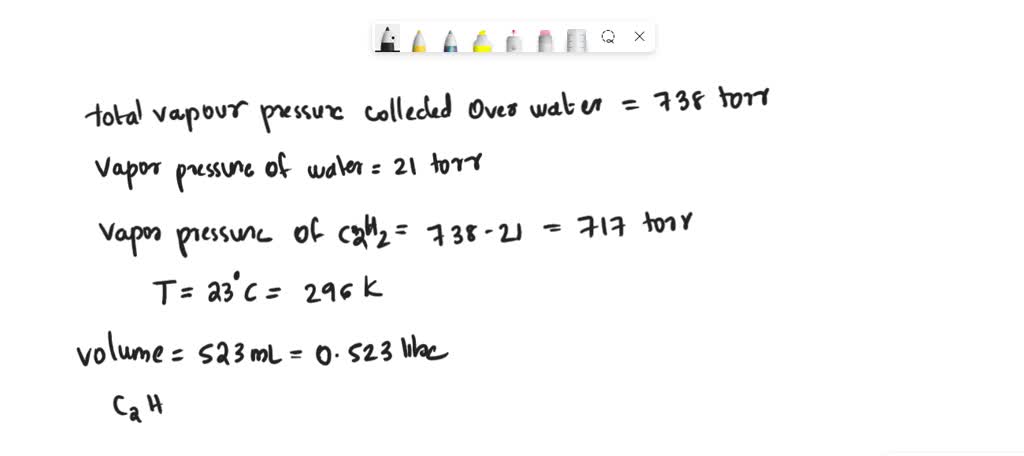 total vapour pressure collected over water = 738 torr
Vapor pressure of water = 21 torr
Vapor pressure of C2H2 = 738 - 21 = 717 torr
T = 23°C = 296 K
volume = 523 mL = 0.523
C2H